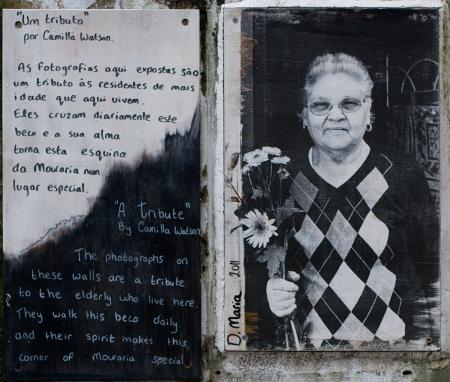 "Um tributo"
por Camilla Watson.
As fotografias aqui expostas são
um tributo às residentes de mais
idade que aqui vivem.
Eles cruzam diariamente este
beco e a sua alma
torna esta esquina
da Mouraria num
lugar especial.
"A Tribute"
By Camilla Watson
The photographs on
these walls are a tribute
to the elderly who live here.
They walk this beco daily
and their spirit makes this
corner of Mouraria special
D. Maria 2011